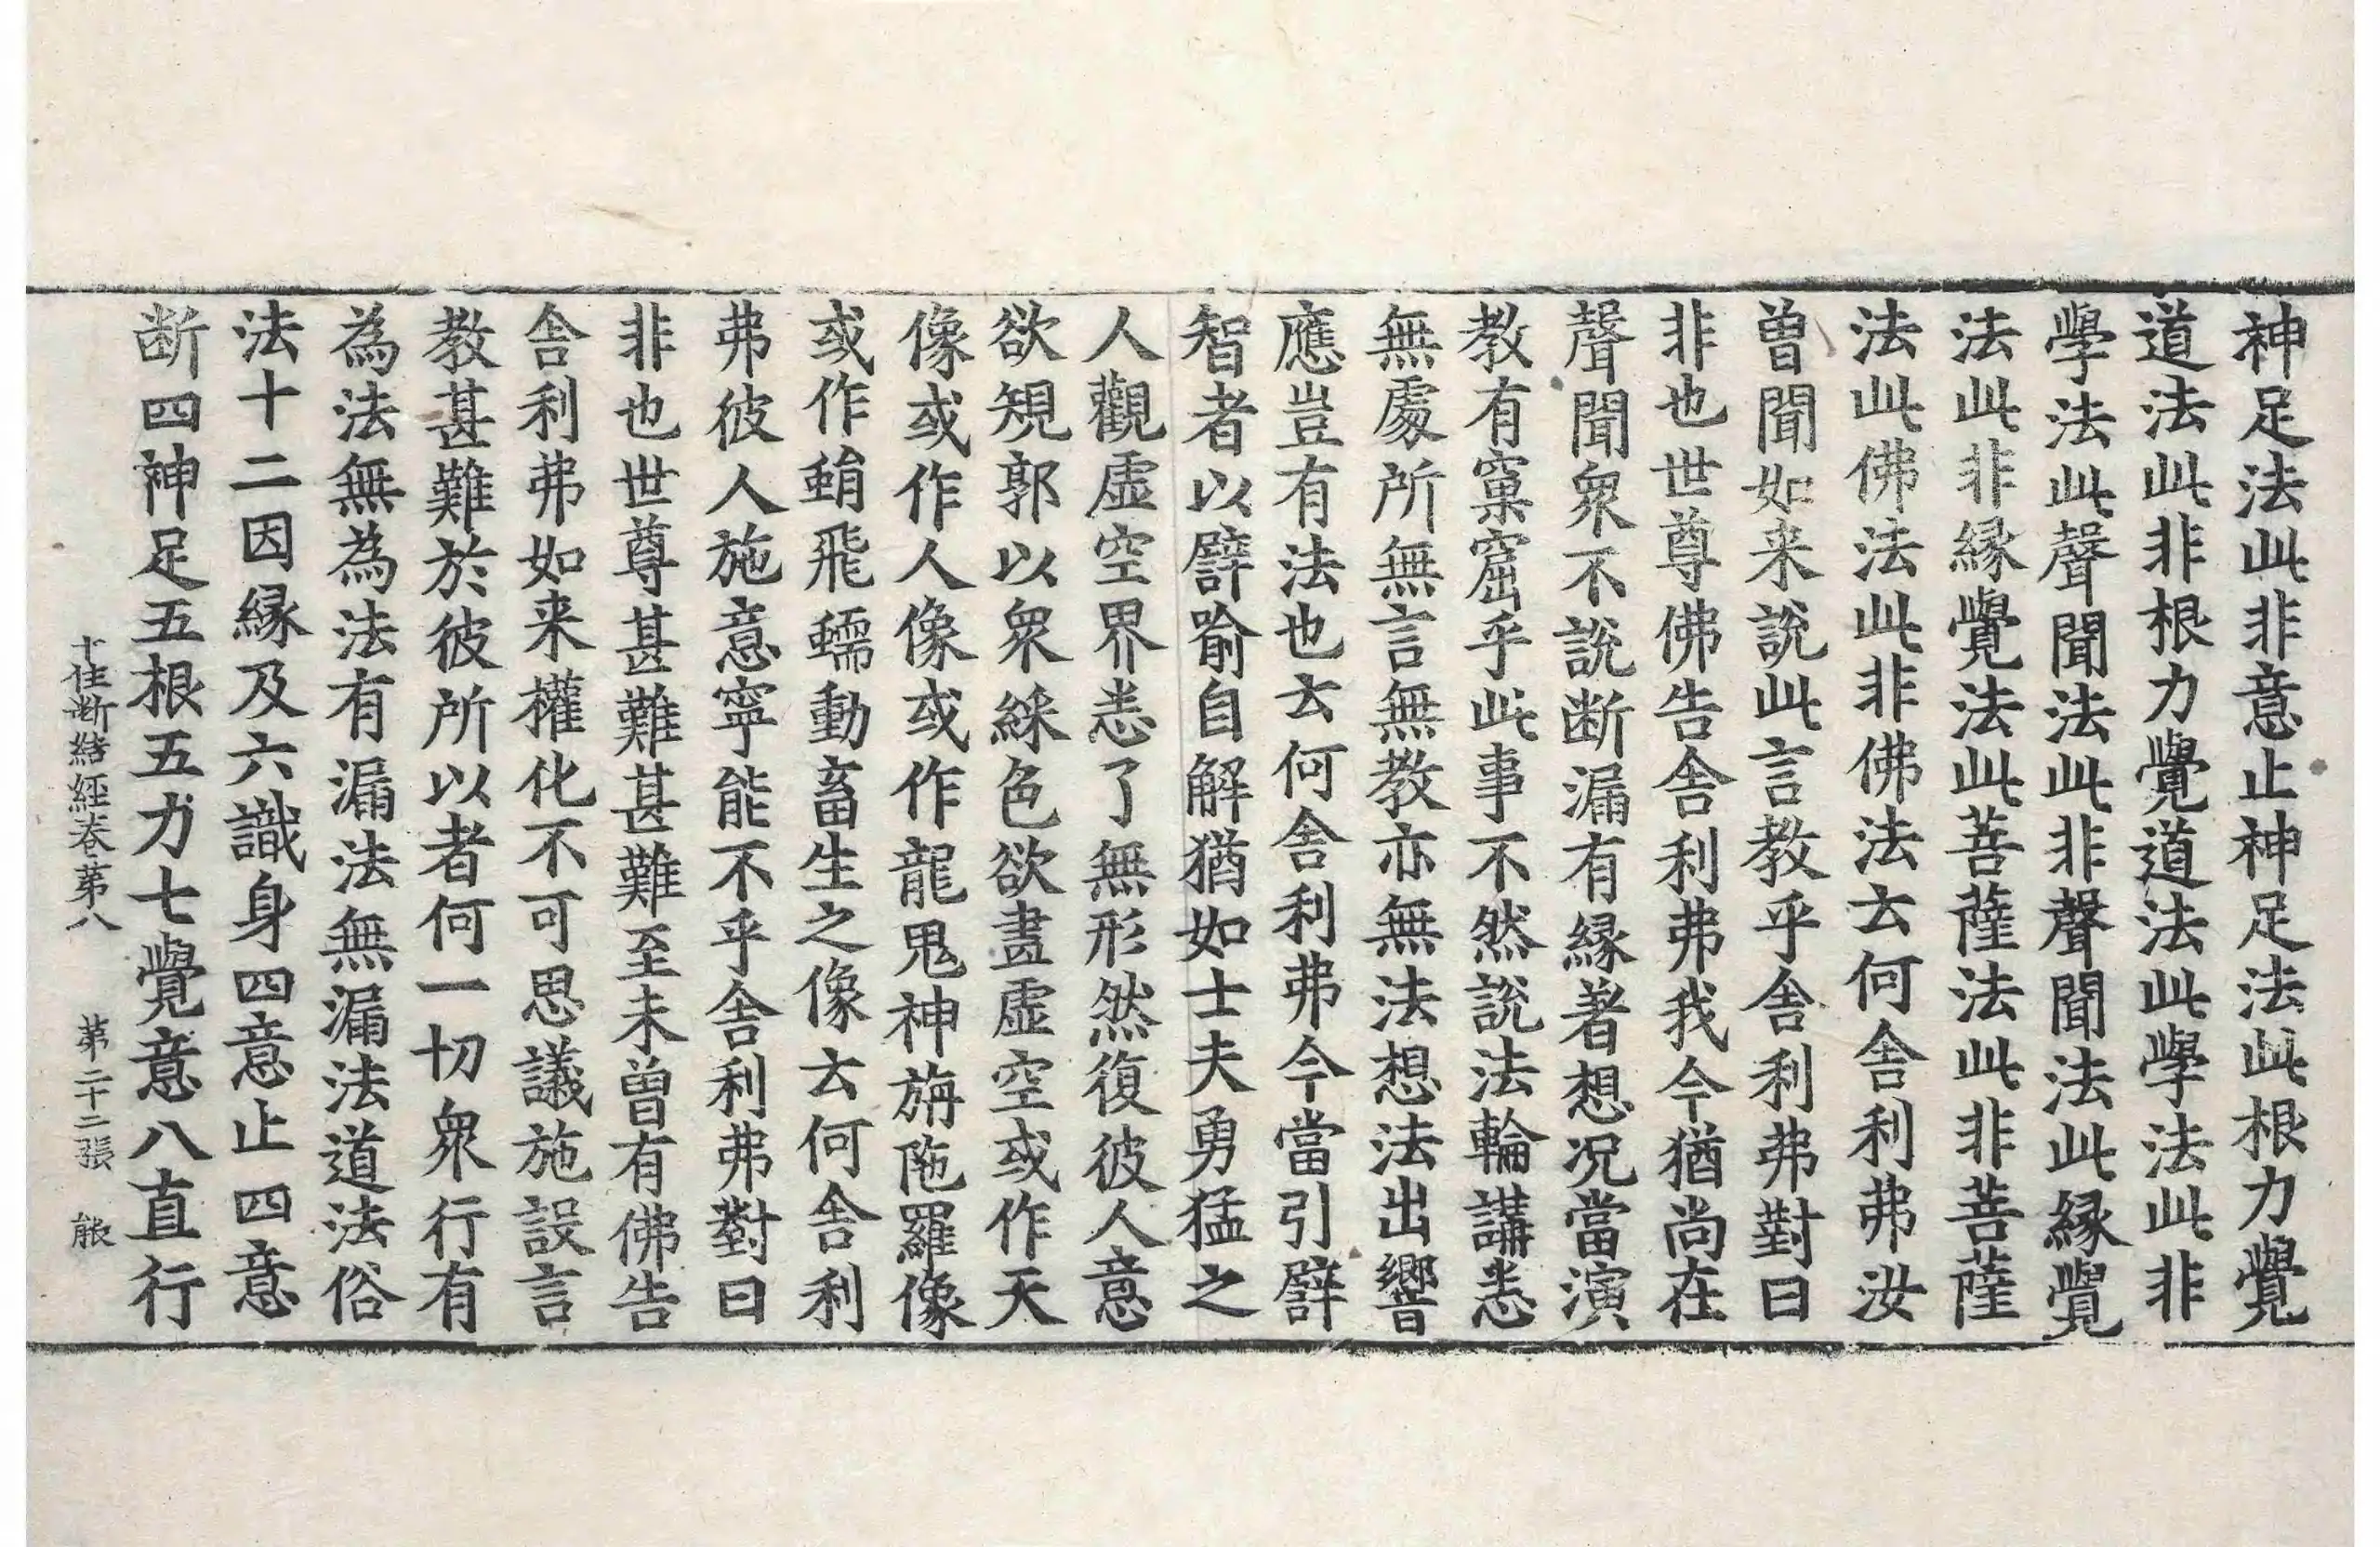 神足法此非意止神足法此根力覺
道法此非根力覺道法此學法此非
學法此聲聞法此非聲聞法此縁覺
法此非縁覺法此菩薩法此非菩薩
法此佛法此非佛法云何舍利弗汝
曽聞如来說此言教乎舍利弗對曰
非也世尊佛告舍利弗我今猶尚在
聲聞衆不說断漏有縁著想况當演
教有窠窟乎此事不然說法輪講悉
無處所無言無教亦無法想法出響
應豈有法也云何舍利弗今當引譬
智者以譬喻自解猶如士夫勇猛之
人觀虛空界悉了無形然復彼人意
欲規郭以衆綵色欲畫虛空或作天
像或作人像或作龍鬼神旃陁羅像
或作蜎飛蠕動畜生之像云何舍利
弗彼人施意寧能不乎舍利弗對曰
非也世尊甚難甚難至未曽有佛告
舍利弗如来權化不可思議施設言
教甚難於彼所以者何一切衆行有
為法無為法有漏法無漏法道法俗
法十二因縁及六識身四意止四意
断四神足五根五力七覺意八直行
十住断結経卷第八 第二十二張 能